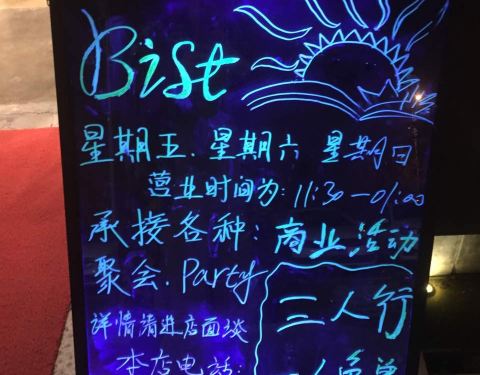 Bist
星期五.星期六 星期日
营业时间为:11:30—01:00
承接各种:商业活动
聚会.Party
三人行
详情请进店面谈
一人免单
本店电话: